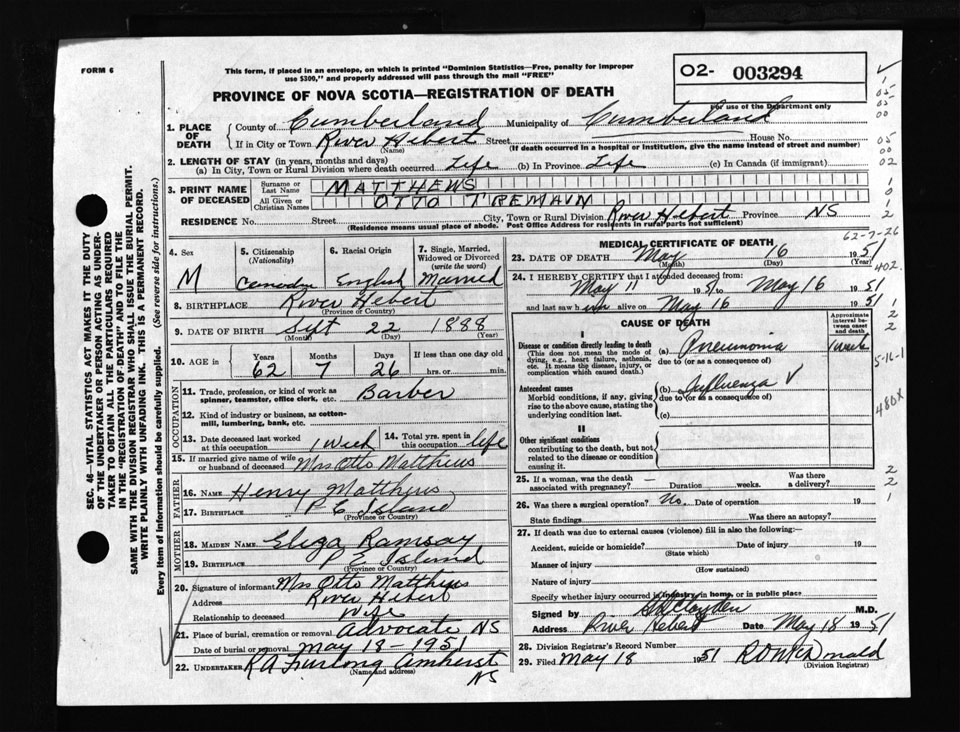 FORM 6
This form, if placed in an envelope, on which is printed "Dominion Statistics—Free, penalty for improper
use $300," and properly addressed will pass through the mail "FREE"
O2- 003294
For use of the Department only
PROVINCE OF NOVA SCOTIA—REGISTRATION OF DEATH
1. PLACE OF DEATH
County of Cumberland Municipality of Cumberland
If in City or Town River Hebert Street House No.
(Name) (If death occurred in a hospital or institution, give the name instead of street and number)
2. LENGTH OF STAY (in years, months and days)
(a) In City, Town or Rural Division where death occurred Life (b) In Province Life (c) In Canada (if immigrant)
3. PRINT NAME OF DECEASED
Surname or Last Name MATTHEWS
All Given or Christian Names OTTO TREMAIN
RESIDENCE No. Street City, Town or Rural Division River Hebert Province NS
(Residence means usual place of abode. Post Office Address for residents in rural parts not sufficient)
4. Sex M
5. Citizenship (Nationality)
6. Racial Origin English
7. Single, Married, Widowed or Divorced (write the word) Married
8. BIRTHPLACE River Hebert
(Province or Country)
9. DATE OF BIRTH Sept 22 1888
(Month) (Day) (Year)
10. AGE in Years Months Days If less than one day old
62 7 26 hrs. or min.
OCCUPATION
11. Trade, profession, or kind of work as
spinner, teamster, office clerk, etc. Barber
12. Kind of industry or business, as cotton-
mill, lumbering, bank, etc.
13. Date deceased last worked
at this occupation 1 Week
14. Total yrs. spent in
this occupation life
15. If married give name of wife
or husband of deceased Mrs Otto Matthews
FATHER
16. NAME Henry Matthews
17. BIRTHPLACE P E Island
(Province or Country)
MOTHER
18. MAIDEN NAME Eliza Ramsay
19. BIRTHPLACE P E Island
(Province or Country)
20. Signature of informant Mrs Otto Matthews
Address River Hebert
Relationship to deceased Wife
21. Place of burial, cremation or removal Advocate NS
Date of burial or removal May 18 - 1951
22. UNDERTAKER R A Furlong Amherst
(Name and address) NS
MEDICAL CERTIFICATE OF DEATH
62-7-26
23. DATE OF DEATH May 16 1951
(Month) (Day) (Year)
24. I HEREBY CERTIFY that I attended deceased from:
May 11 1951 to May 16 1951
and last saw him alive on May 16 1951
CAUSE OF DEATH
Approximate interval between onset and death
I
Disease or condition directly leading to death
(This does not mean the mode of
dying, e.g., heart failure, asthenia,
etc. It means the disease, injury, or
complication which caused death.)
(a) Pneumonia 1 week
due to (or as a consequence of)
Antecedent causes
Morbid conditions, if any, giving
rise to the above cause, stating the
underlying condition last.
(b) Influenza
due to (or as a consequence of)
(c)
II
Other significant conditions
contributing to the death, but not
related to the disease or condition
causing it.
402.
5-16-1
480x
25. If a woman, was the death
associated with pregnancy? Duration weeks. Was there a delivery?
26. Was there a surgical operation? No. Date of operation 19
State findings Was there an autopsy?
27. If death was due to external causes (violence) fill in also the following:—
Accident, suicide or homicide? Date of injury 19
(State which)
Manner of injury
(How sustained)
Nature of injury
Specify whether injury occurred in industry, in home, or in public place
Signed by M.D.
Address River Hebert Date May 18 1951
28. Division Registrar's Record Number
29. Filed May 18 1951
(Division Registrar)
SEC. 46—VITAL STATISTICS ACT MAKES IT THE DUTY
OF THE UNDERTAKER OR PERSON ACTING AS UNDER-
TAKER TO OBTAIN ALL THE PARTICULARS REQUIRED
IN THE "REGISTRATION OF DEATH" AND TO FILE THE
SAME WITH THE DIVISION REGISTRAR WHO SHALL ISSUE THE BURIAL PERMIT.
WRITE PLAINLY WITH UNFADING INK. THIS IS A PERMANENT RECORD.
Every item of information should be carefully supplied. (See reverse side for instructions.)